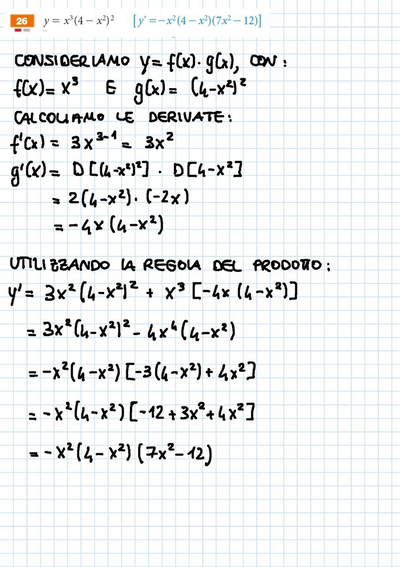 26 y = x³(4 − x²)² [y' = −x²(4 − x²)(7x² − 12)]
CONSIDERIAMO y = f(x) · g(x), CON:
f(x) = x³ E g(x) = (4-x²)²
CALCOLIAMO LE DERIVATE:
f'(x) = 3x³⁻¹ = 3x²
g'(x) = D[(4-x²)²] · D[4-x²]
= 2(4-x²) · (-2x)
= -4x(4-x²)
UTILIZZANDO LA REGOLA DEL PRODOTTO:
y' = 3x²(4-x²)² + x³[-4x(4-x²)]
= 3x²(4-x²)² - 4x⁴(4-x²)
= -x²(4-x²)[-3(4-x²) + 4x²]
= -x²(4-x²)[-12 + 3x² + 4x²]
= -x²(4-x²)(7x²-12)